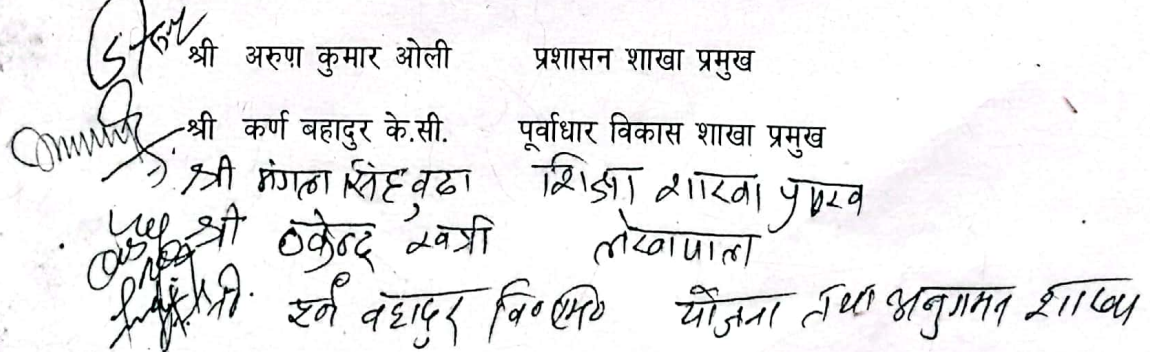 श्री अरुण कुमार ओली प्रशासन शाखा प्रमुख
श्री कर्ण बहादुर के.सी. पूर्वाधार विकास शाखा प्रमुख
श्री मंगला सिंह वुढा शिक्षा शाखा प्रमुख
श्री खत्री लेखापाल
श्री. वहादुर योजना तथा अनुगमन शाखा